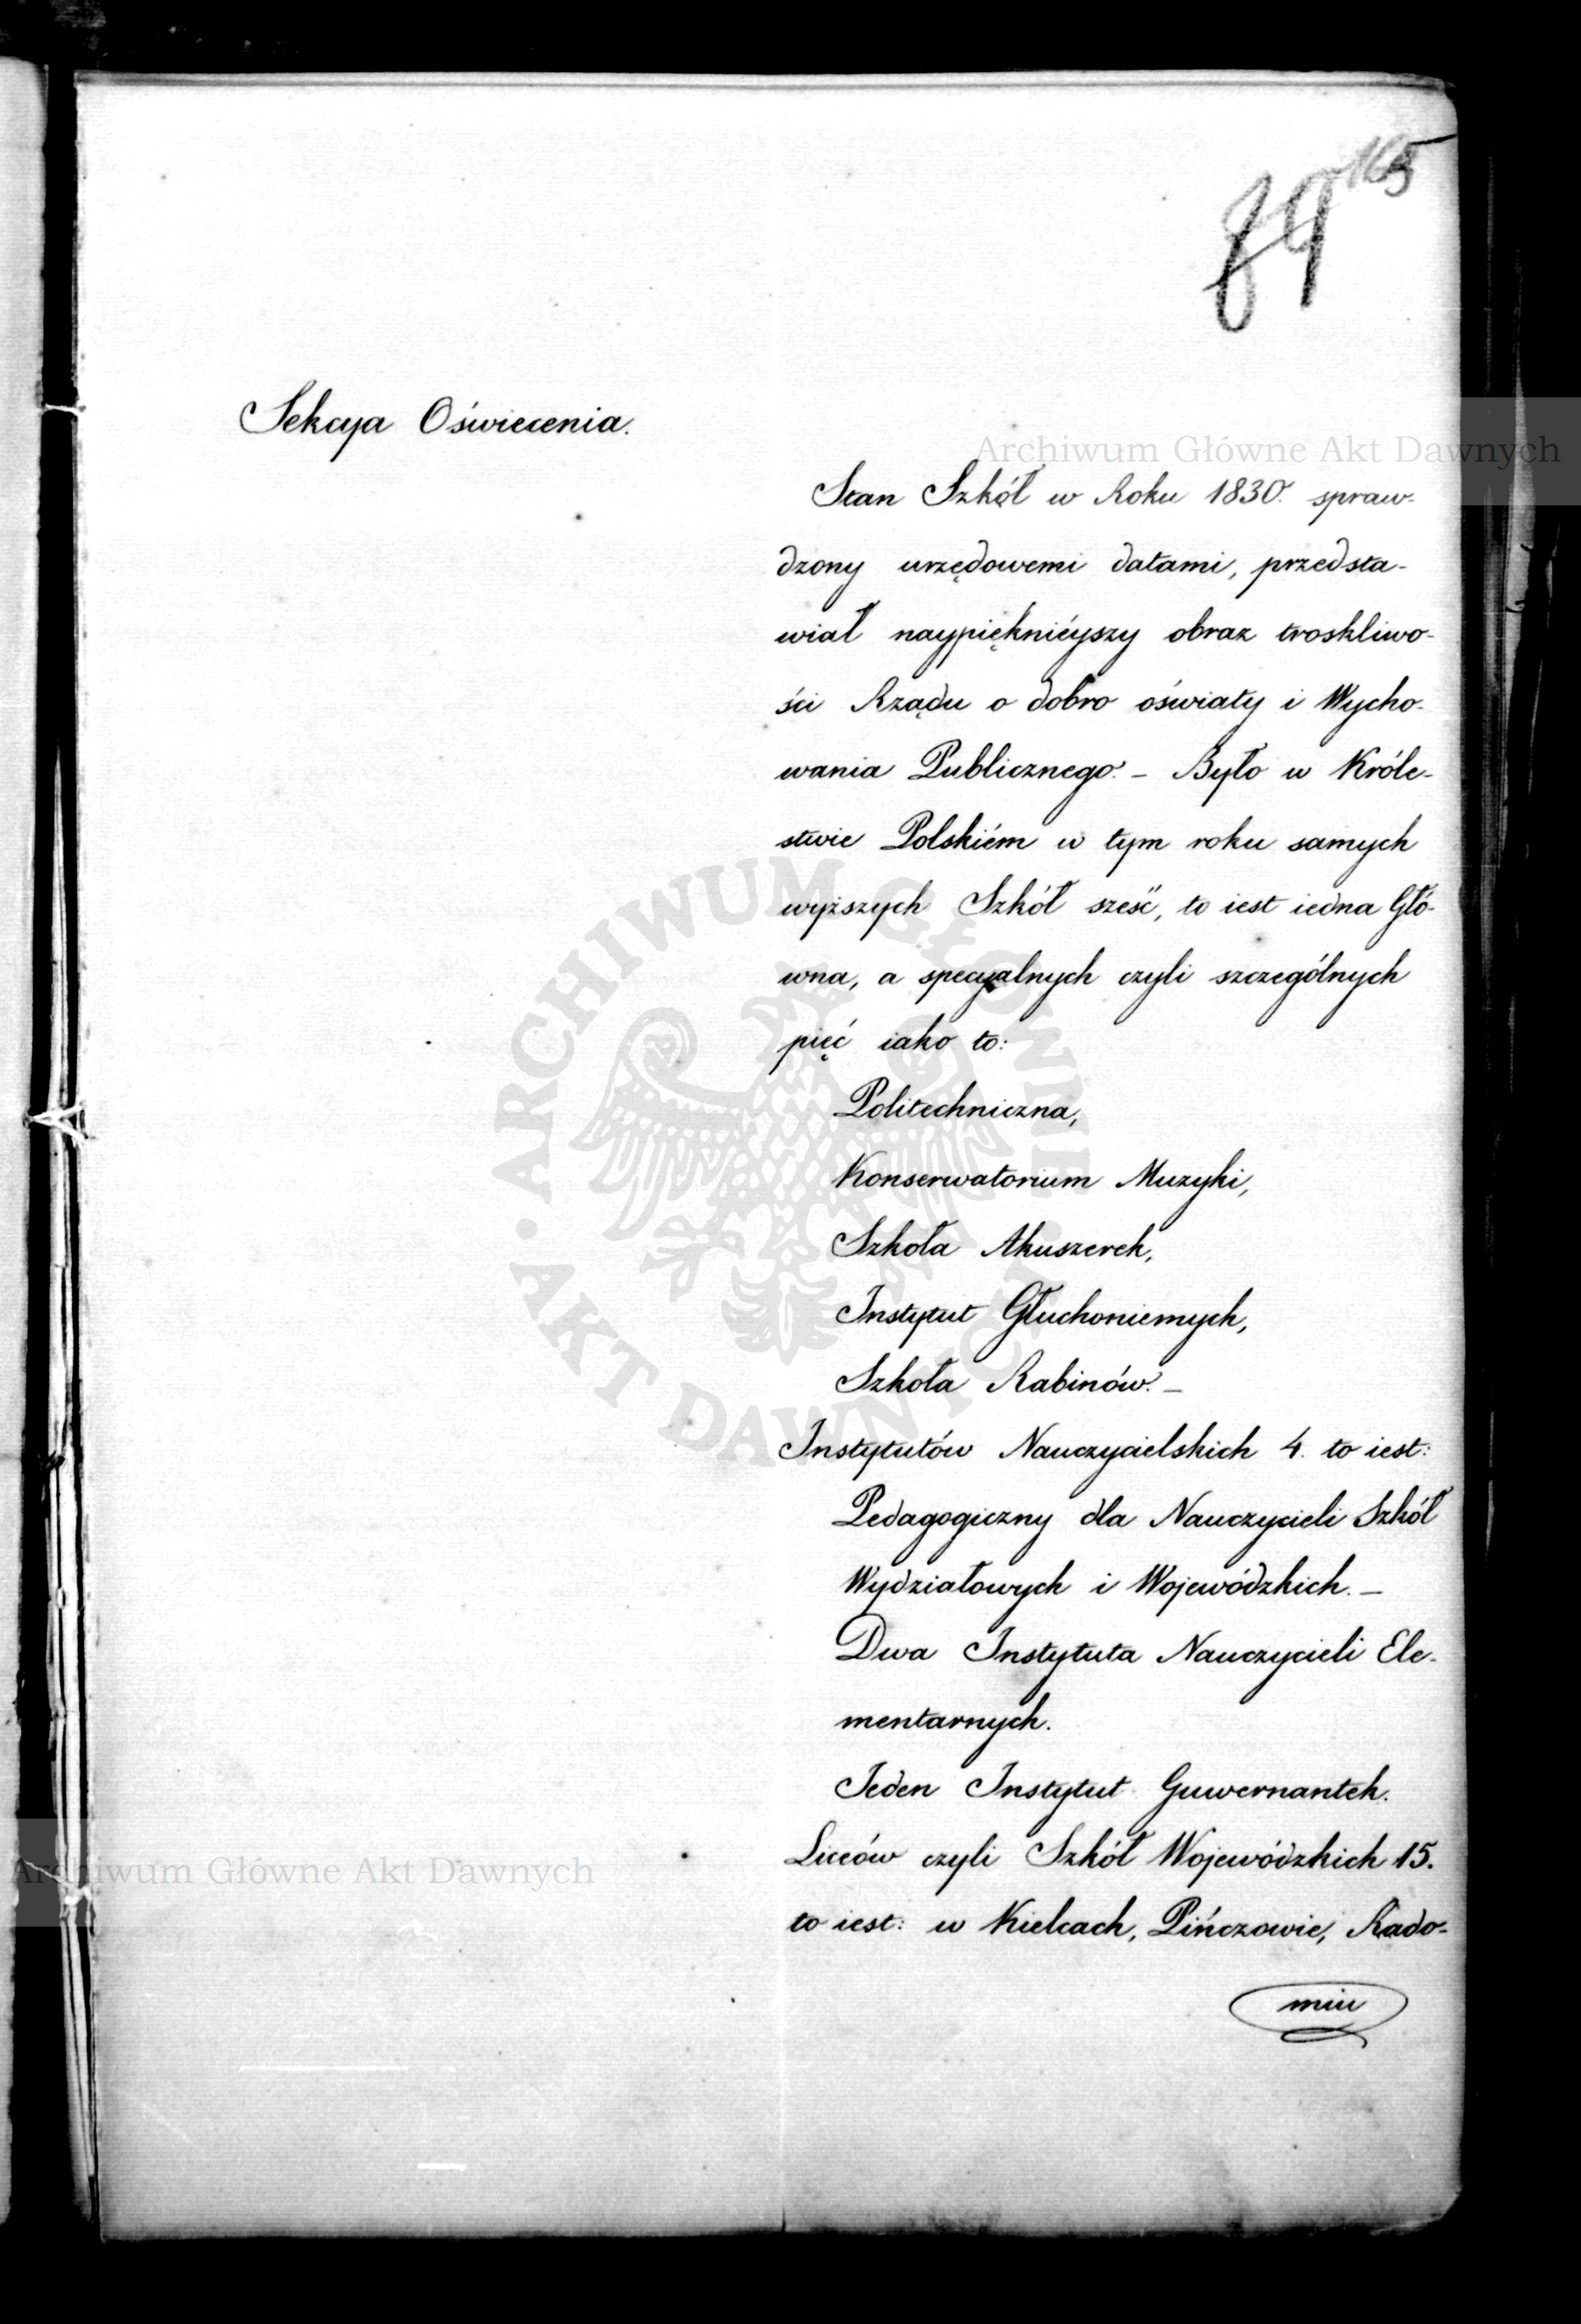 165
84
Sekcya Oświecenia.
Archiwum Główne Akt Dawnych
Stan Szkół w Roku 1830. spraw-
dzony urzędowemi datami, przedsta-
wiał naypiękniéyszy obraz troskliwo-
ści Rządu o dobro oświaty i Wycho-
wania Publicznego. – Było w Króle-
stwie Polskiém w tym roku samych
wyższych Szkół sześć, to iest iedna Głó-
wna, a specyalnych czyli szczególnych
pięć iako to:
Politechniczna,
Konserwatorium Muzyki,
Szkoła Akuszerek,
Instytut Głuchoniemych,
Szkoła Rabinów. –
Instytutów Nauczycielskich 4. to iest:
Pedagogiczny dla Nauczycieli Szkół
Wydziałowych i Wojewódzkich. –
Dwa Instytuta Nauczycieli Ele-
mentarnych.
Jeden Instytut Guwernantek.
Liceów czyli Szkół Wojewódzkich 15.
to iest: w Kielcach, Pińczowie, Rado-
miu
ARCHIWUM GŁÓWNE · AKT DAWNYCH ·
Archiwum Główne Akt Dawnych